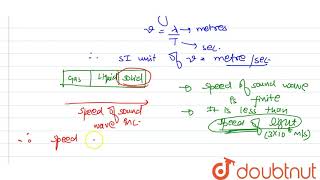 v = λ/T → metres
→ sec.
∴ SI unit of v = metre/sec.
Gas | Liquid | solid
speed of sound wave inc.
→ speed of sound wave is finite
→ It is less than speed of light (3×10⁸ m/s)
∴ speed
doubtnut